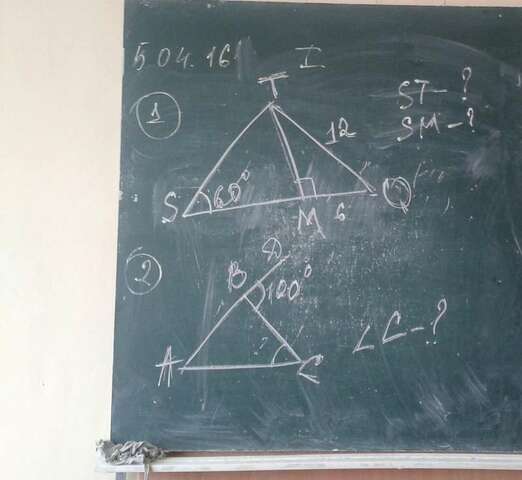 5.04.16
I
1
T
12
ST - ?
SM - ?
S
60°
M
6
Q
2
D
B
100°
A
?
C
∠C - ?